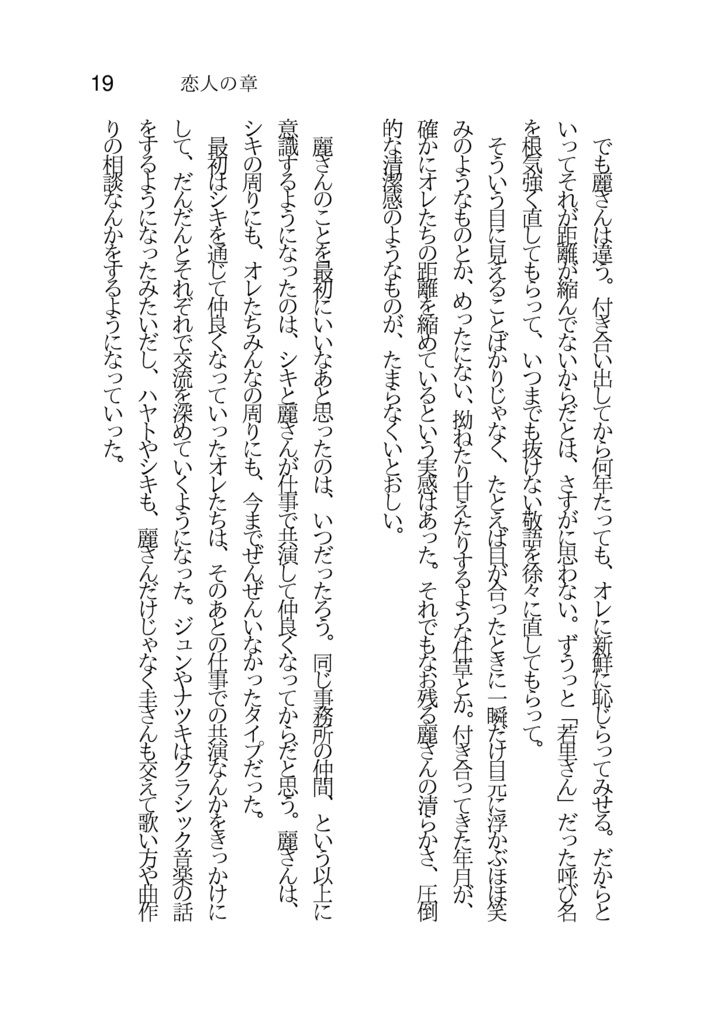 19
恋人の章
でも麗さんは違う。付き合い出してから何年たっても、オレに新鮮に恥じらってみせる。だからと
いってそれが距離が縮んでないからだとは、さすがに思わない。ずうっと「若里さん」だった呼び名
を根気強く直してもらって、いつまでも抜けない敬語を徐々に直してもらって。
そういう目に見えることばかりじゃなく、たとえば目が合ったときに一瞬だけ目元に浮かぶほほ笑
みのようなものとか、めったにない、拗ねたり甘えたりするような仕草とか。付き合ってきた年月が、
確かにオレたちの距離を縮めているという実感はあった。それでもなお残る麗さんの清らかさ、圧倒
的な清潔感のようなものが、たまらなくいとおしい。
麗さんのことを最初にいいなあと思ったのは、いつだったろう。同じ事務所の仲間、という以上に
意識するようになったのは、シキと麗さんが仕事で共演して仲良くなってからだと思う。麗さんは、
シキの周りにも、オレたちみんなの周りにも、今までぜんぜんいなかったタイプだった。
最初はシキを通じて仲良くなっていったオレたちは、そのあとの仕事での共演なんかをきっかけに
して、だんだんとそれぞれで交流を深めていくようになった。ジュンやナツキはクラシック音楽の話
をするようになったみたいだし、ハヤトやシキも、麗さんだけじゃなく圭さんも交えて歌い方や曲作
りの相談なんかをするようになっていった。